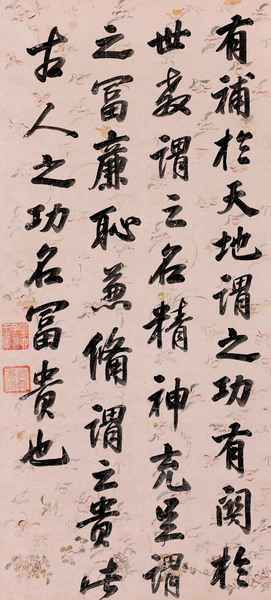 有補於天地謂之功有關於
世教謂之名精神充足謂
之富廉恥兼備謂之貴此
古人之功名富貴也